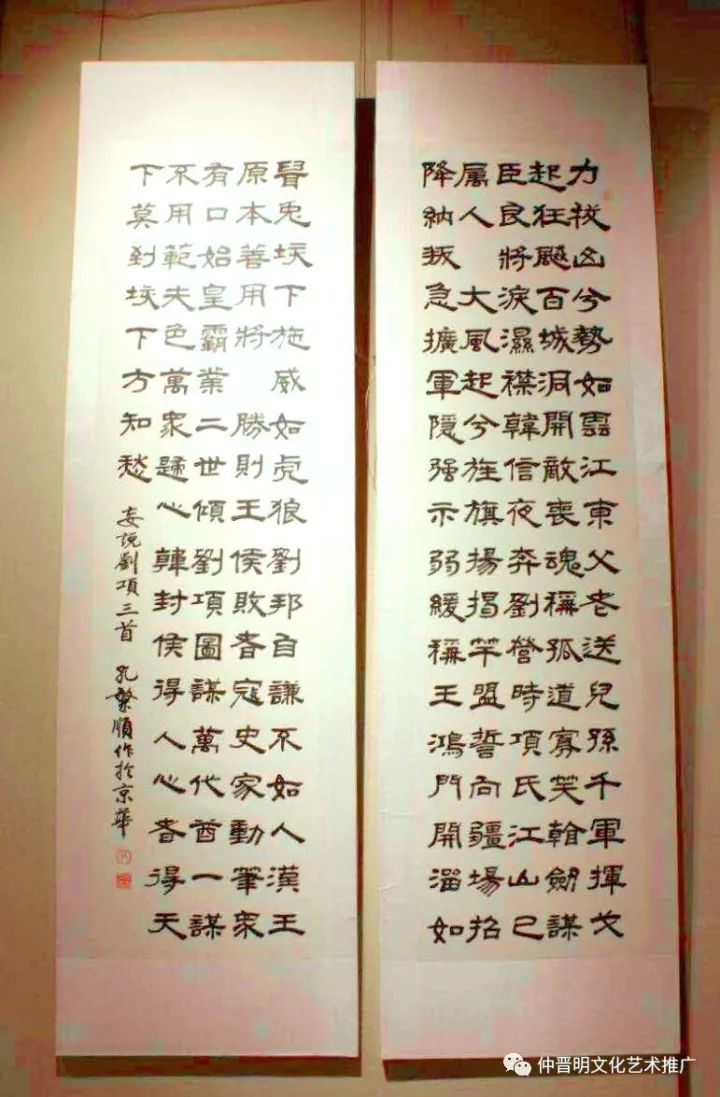 力拔山兮勢如雲江東父老送兒孫千軍揮戈
起狂飈百城洞開敵喪魂稱孤道寡笑翰劒謀
臣良將淚濕襟韓信夜奔劉營時項氏江山已
屬人 大風起兮旌旗揚揭竿盟誓向疆場招
降納叛急擴軍隱强示弱緩稱王鴻門開溜如
兔垓下施威如虎狼劉邦自謙不如人漢王
原本善用將 勝則王侯敗者寇史家動筆衆
有口始皇霸業二世傾劉項圖謀萬代酋一謀
不用範夫色萬衆心韓封侯得人心者得天
下莫到垓下方知愁
妄説劉項三首 孔繁順作於京華
仲晋明文化艺术推广